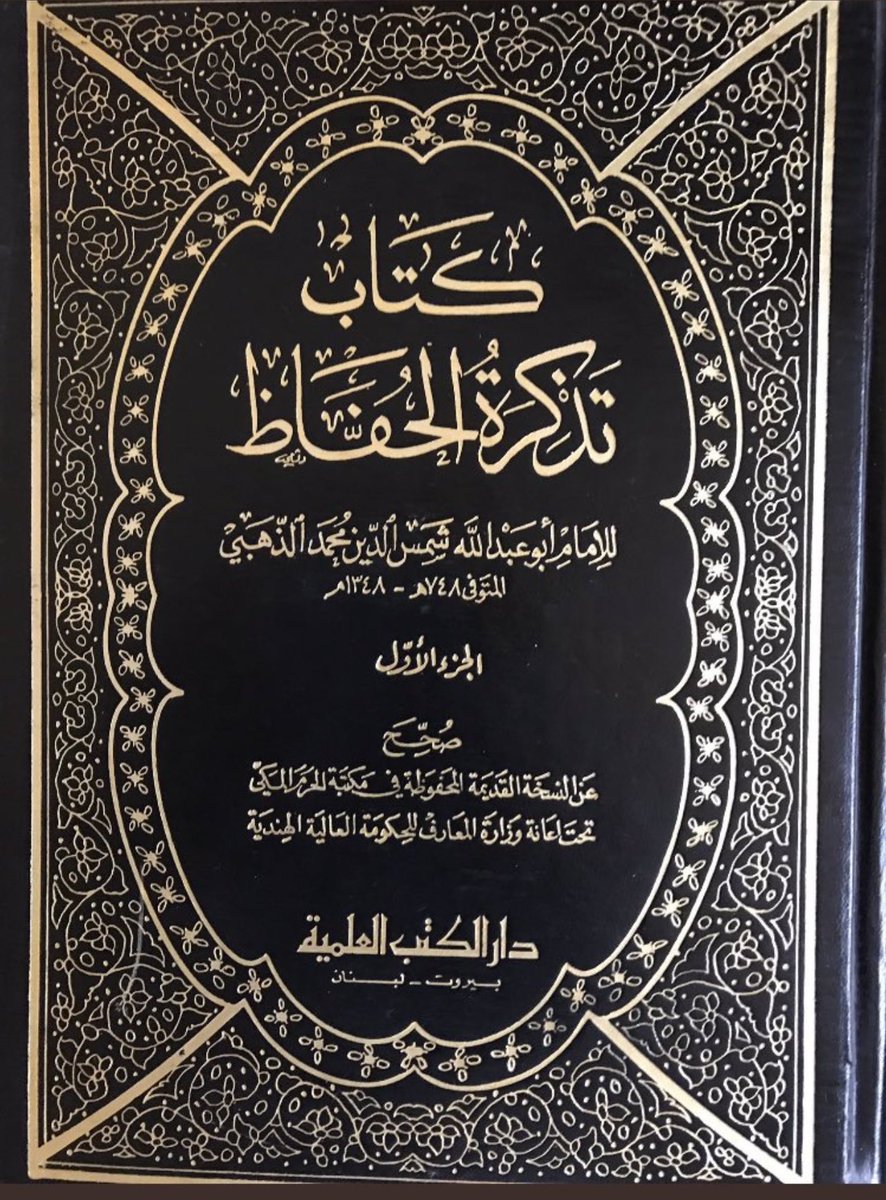 كتاب
تذكرة الحفاظ
للإمام أبو عبد الله شمس الدين محمد الذهبي
المتوفى ٧٤٨هـ - ١٣٤٨م
الجزء الأول
صُحِّحَ
عن النسخة القديمة المحفوظة في مكتبة الحرم المكي
تحت اعانة وزارة المعارف للحكومة العالية الهندية
دار الكتب العلمية
بيروت - لبنان